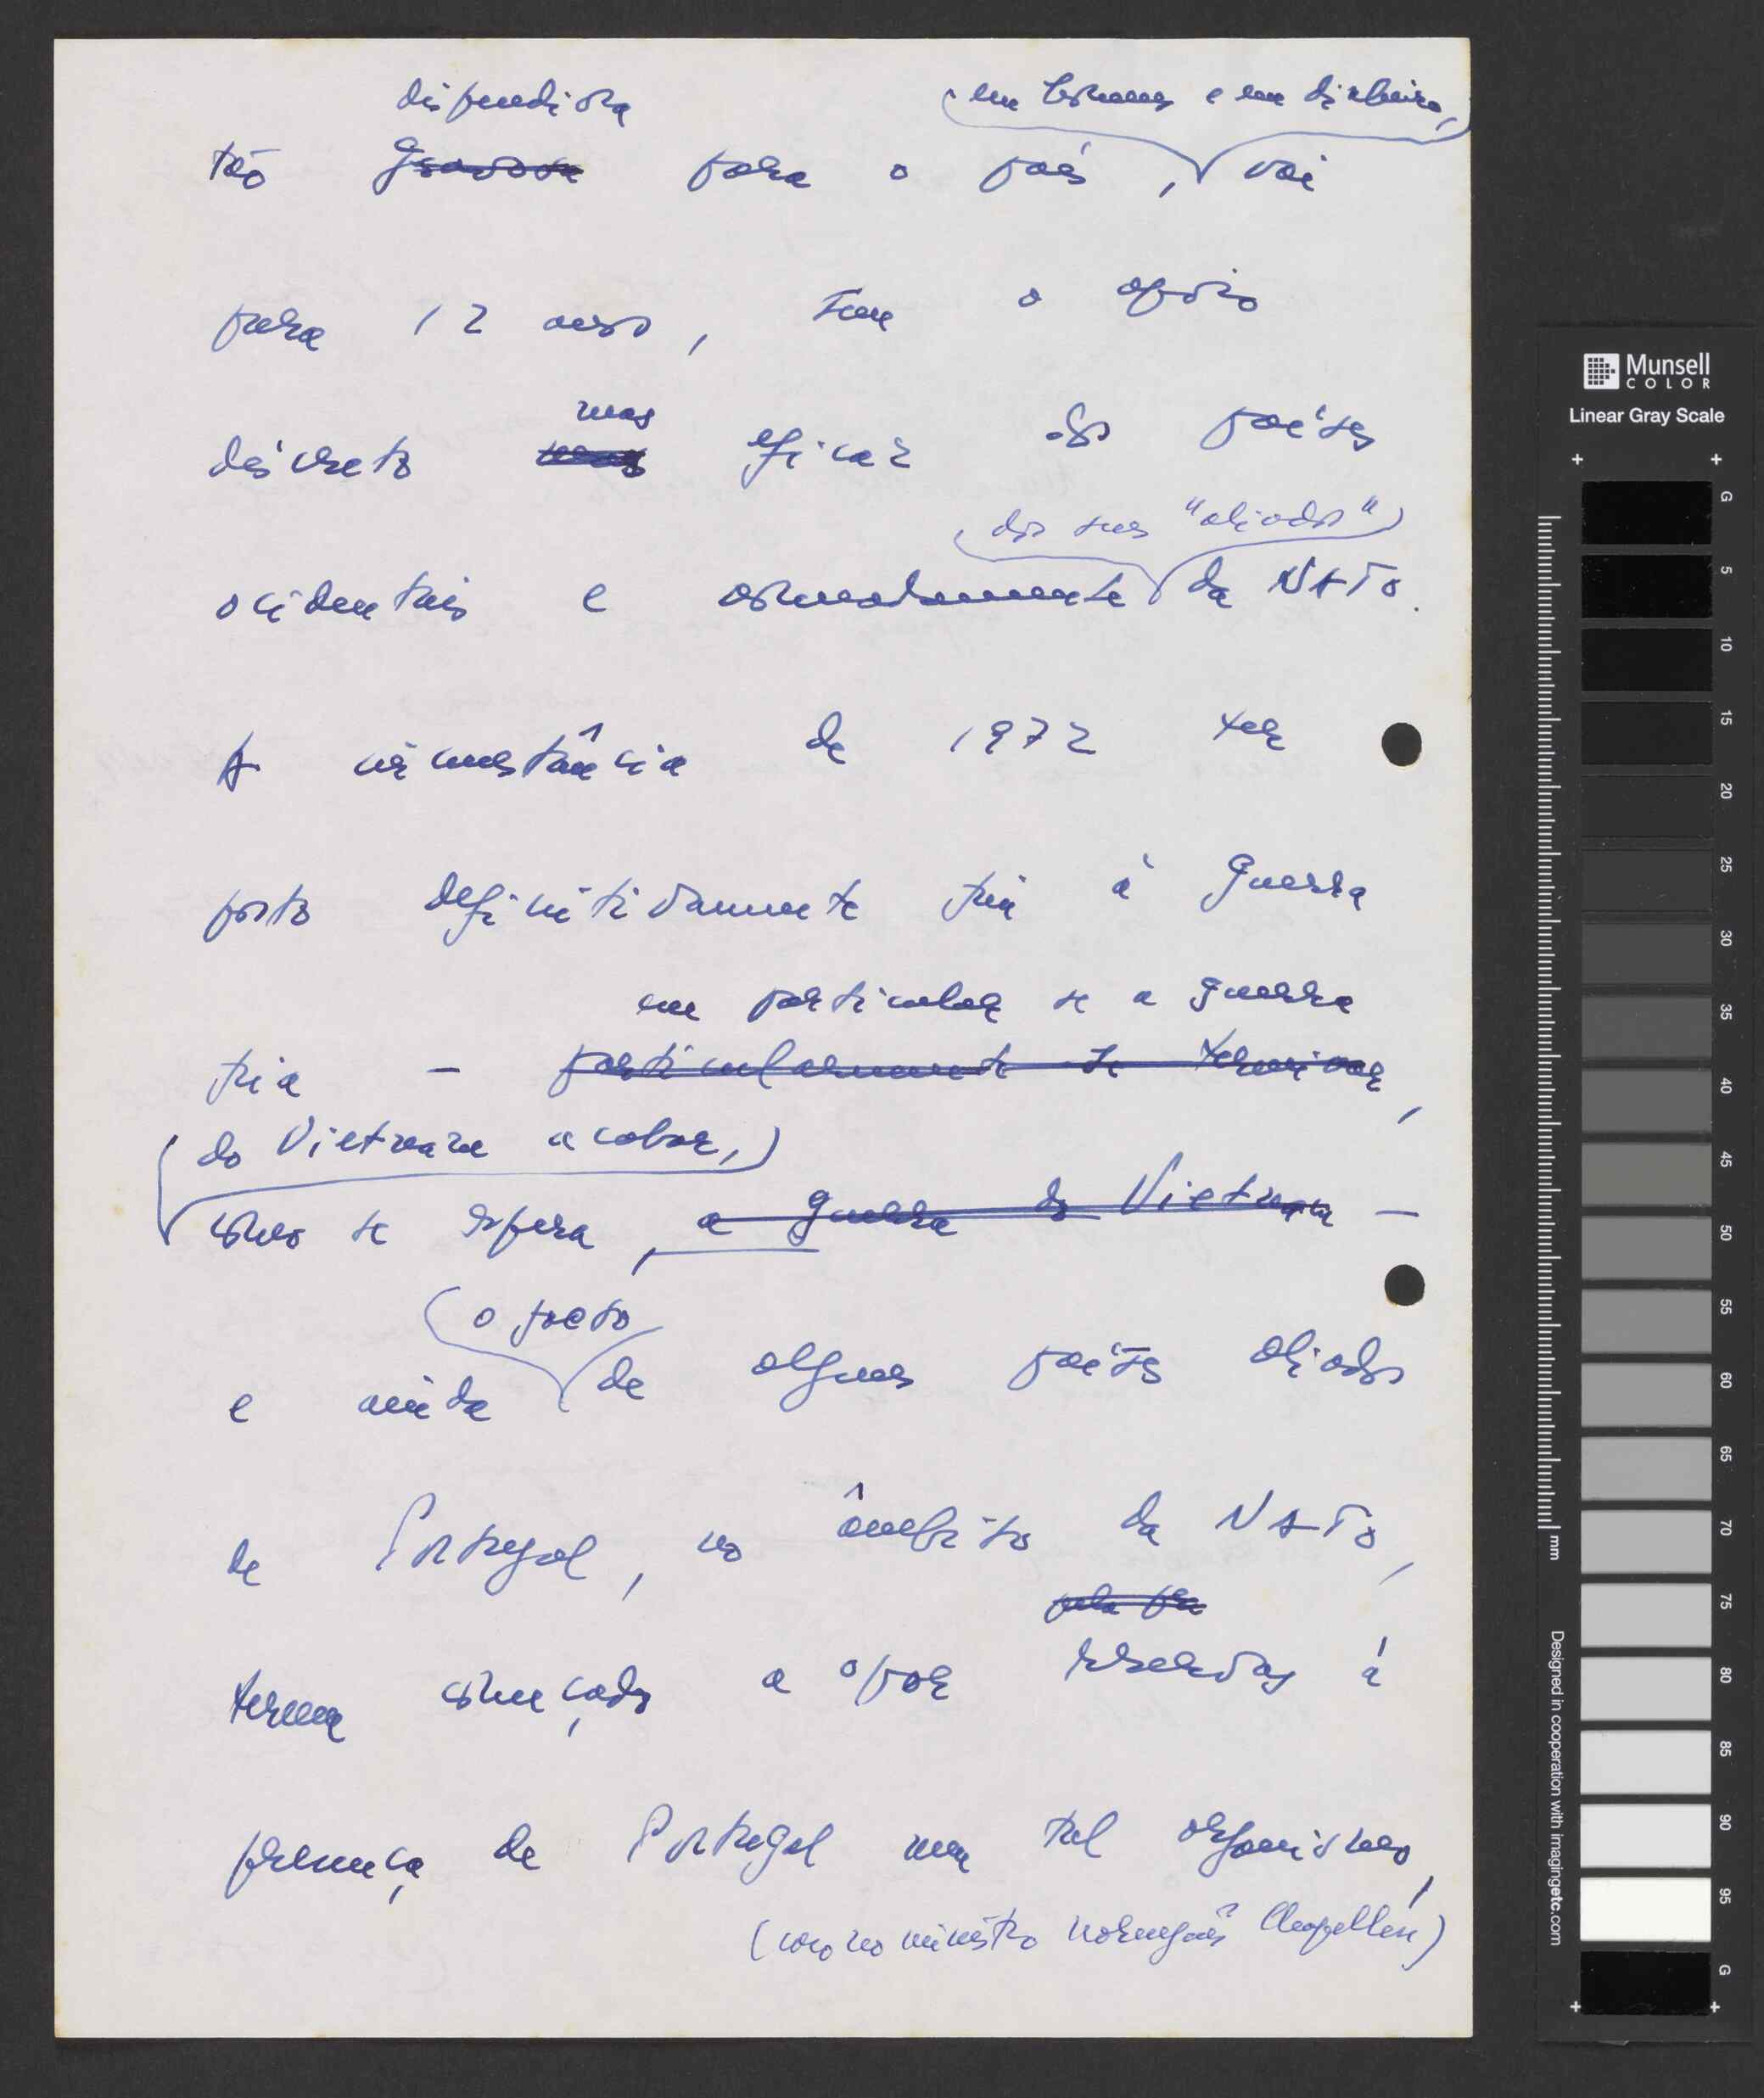 dispendiosa
em homens e em dinheiro,
tão gravosa para o país, vai
para 12 anos, tem o apoio
mas
discreto mas eficaz dos países
dos seus "aliados"
ocidentais e nomeadamente da NATO.
A circunstância de 1972 ter
posto definitivamente fim à guerra
em particular se a guerra
fria — particularmente se terminar,
do Vietnam acabar,
como se espera, a guerra do Vietnam —
o facto
e ainda de alguns países aliados
de Portugal, no âmbito da NATO,
pela pre
terem começado a opor reservas à
presença de Portugal num tal organismo,
(como o ministro norueguês)
Munsell
COLOR
Linear Gray Scale
G
5
10
15
20
25
30
35
40
45
50
55
60
65
70
75
80
85
90
95
G
mm
Designed in cooperation with imagingetc.com